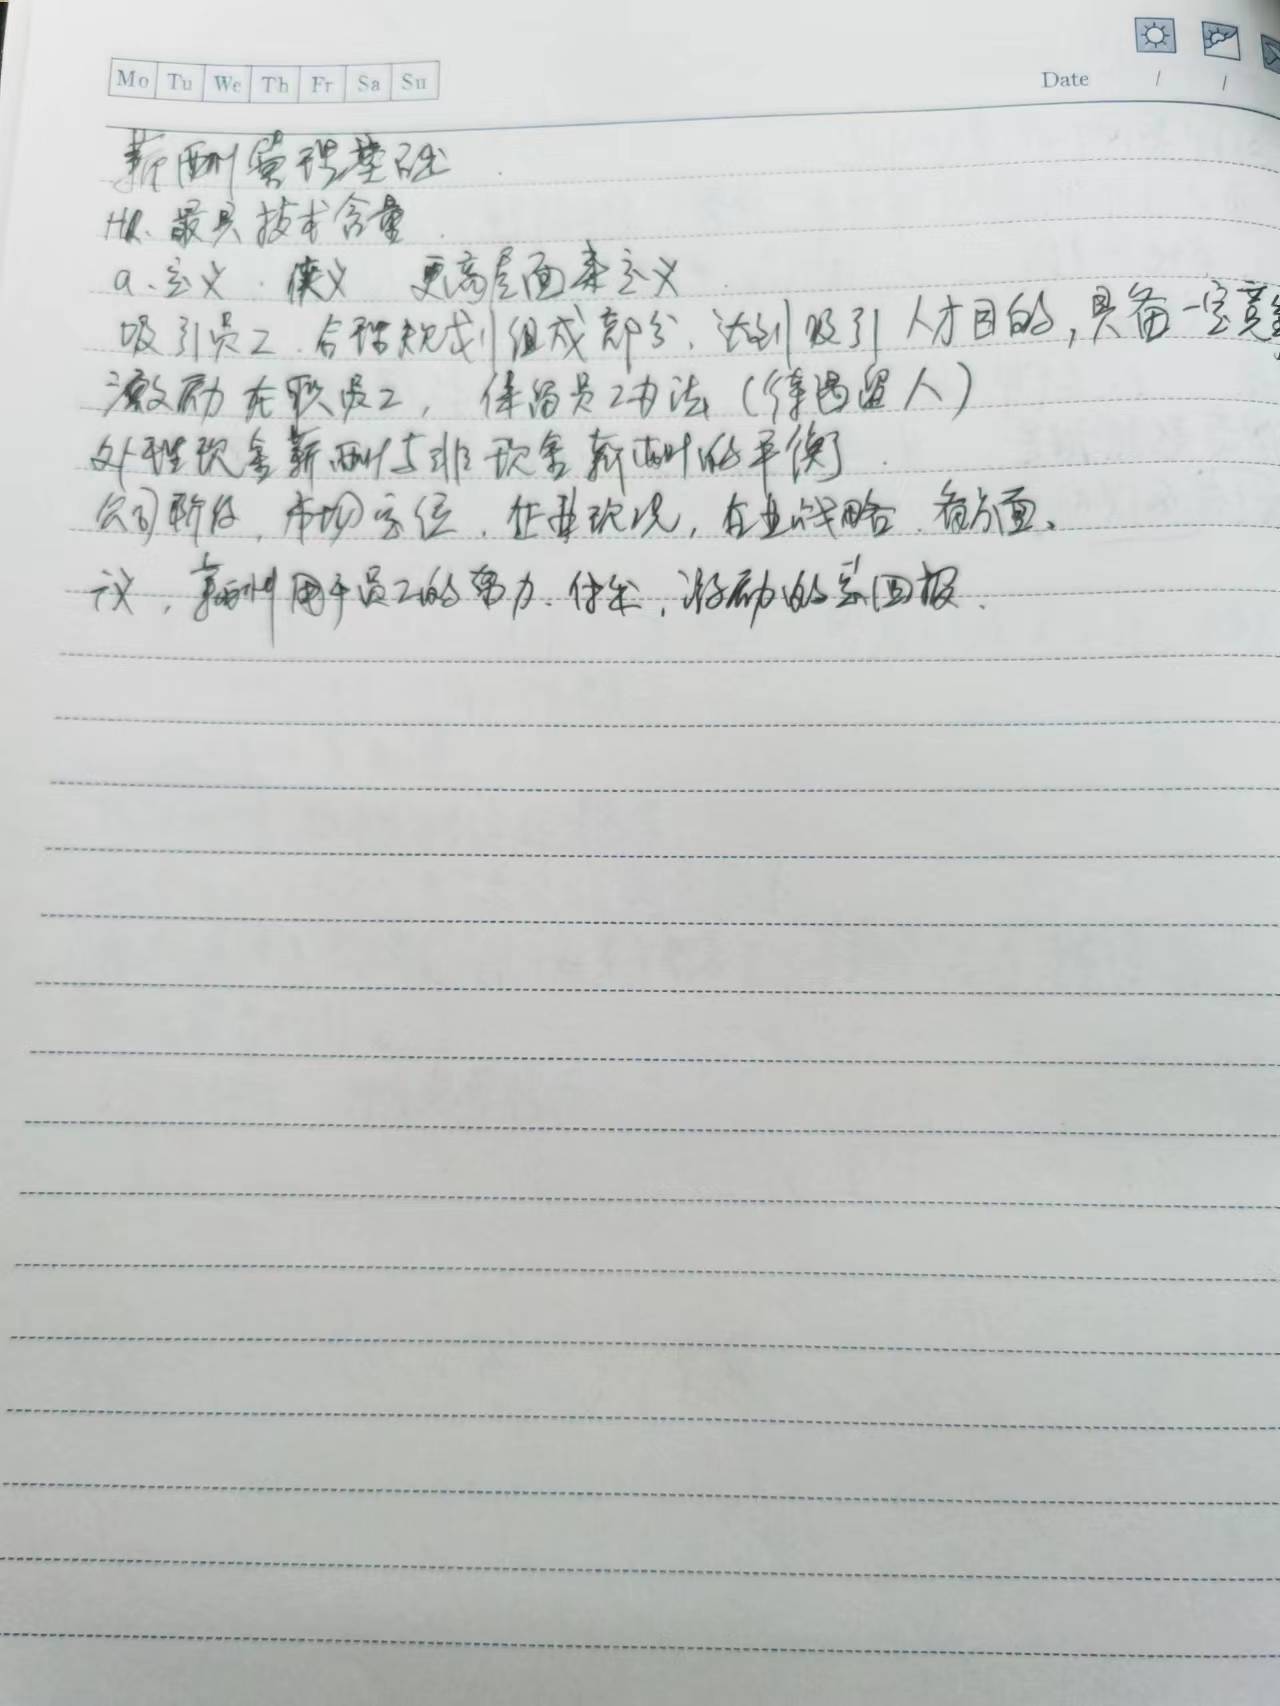 Mo Tu We Th Fr Sa Su
Date / /
薪酬管理基础
HR、最具技术含量
a、定义 . 狭义 更高层面来定义
吸引员工、合理规划组成部分、达到吸引人才目的，具备一定竞争
激励在职员工，保留员工办法（待遇留人）
处理现金薪酬与非现金薪酬的平衡
公司阶段，市场定位、企业现况，企业战略、各方面、
议，薪酬用于员工的努力、付出，激励的总回报、